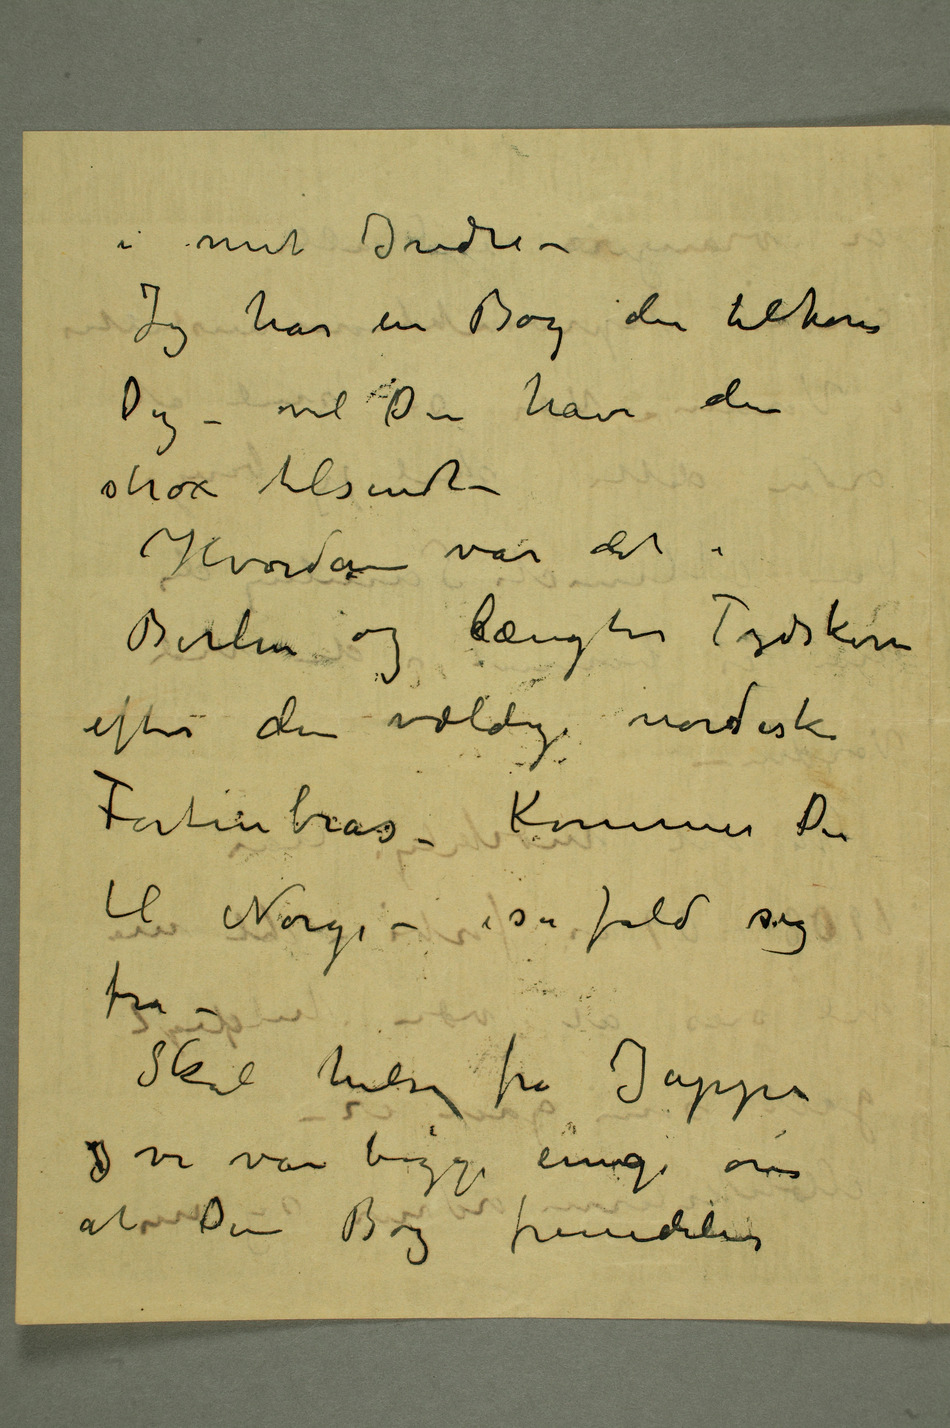 i mit Indre –
Jeg har en Bog der tilhører
Dig – vil Du have den
strax tilsendt –
Hvordan var det i
Berlin og længter Tydskern
efter den vældige nordiske
Fortinbras – Kommer Du
til Norge – isåfald sig
fra –
Skal hilse fra Jappe
og vi var bigge enige om
at Din Bog fremdeles